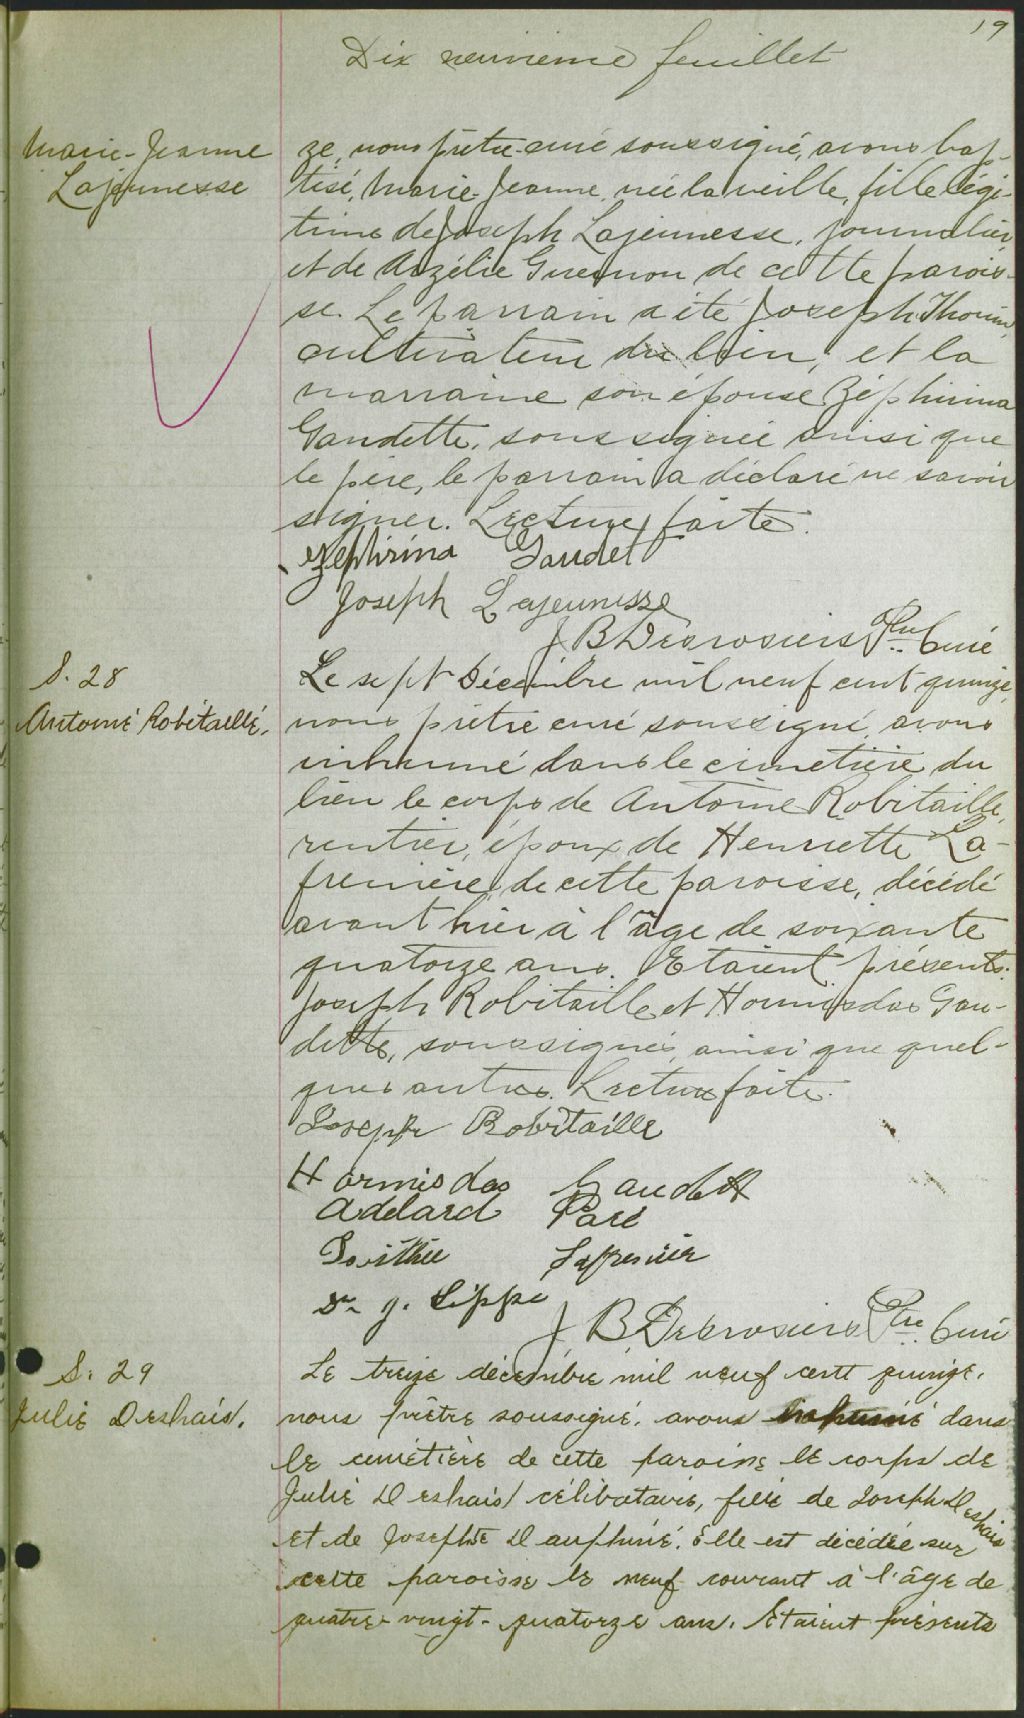 19
Dix neuvieme feuillet
Marie-Jeanne
Lajeunesse
ze, nous prêtre curé soussigné, avons bap-
tisé, Marie-Jeanne, née la veille, fille légi-
time de Joseph Lajeunesse, journalier,
et de Arzélie Guernon de cette parois-
se. Le parrain a été Joseph Thouin
cultivateur du lieu, et la
marraine son épouse Zéphirina
Gaudette, soussignée ainsi que
le père, le parrain a déclaré ne savoir
signer. Lecture faite.
Zephirina Gaudet
Joseph Lajeunesse
J B Desrosiers Ptre Curé
S. 28
Antoine Robitaille.
Le sept Décembre mil neuf cent quinze,
nous prêtre curé soussigné, avons
inhumé dans le cimetière du
lieu le corps de Antoine Robitaille,
rentier, époux de Henriette La-
frenière, de cette paroisse, décédé
avant hier à l'âge de soixante
quatorze ans. Etaient présents:
Joseph Robitaille et Hormisdas Gau-
dette, soussignés, ainsi que quel-
ques autres. Lecture faite.
Joseph Robitaille
Hormisdas Gaudett
Adelard Paré
Lafrenier
Dr J. Lippé
J B Desrosiers Ptre Curé
S. 29
Julie Deshais.
Le treize décembre mil neuf cent quinze,
nous prêtre soussigné, avons inhumé dans
le cimetière de cette paroisse le corps de
Julie Deshais célibataire, fille de Joseph Deshais
et de Josephte Dauphiné. Elle est décédée sur
cette paroisse le neuf courant à l'âge de
quatre-vingt-quatorze ans. Etaient présents